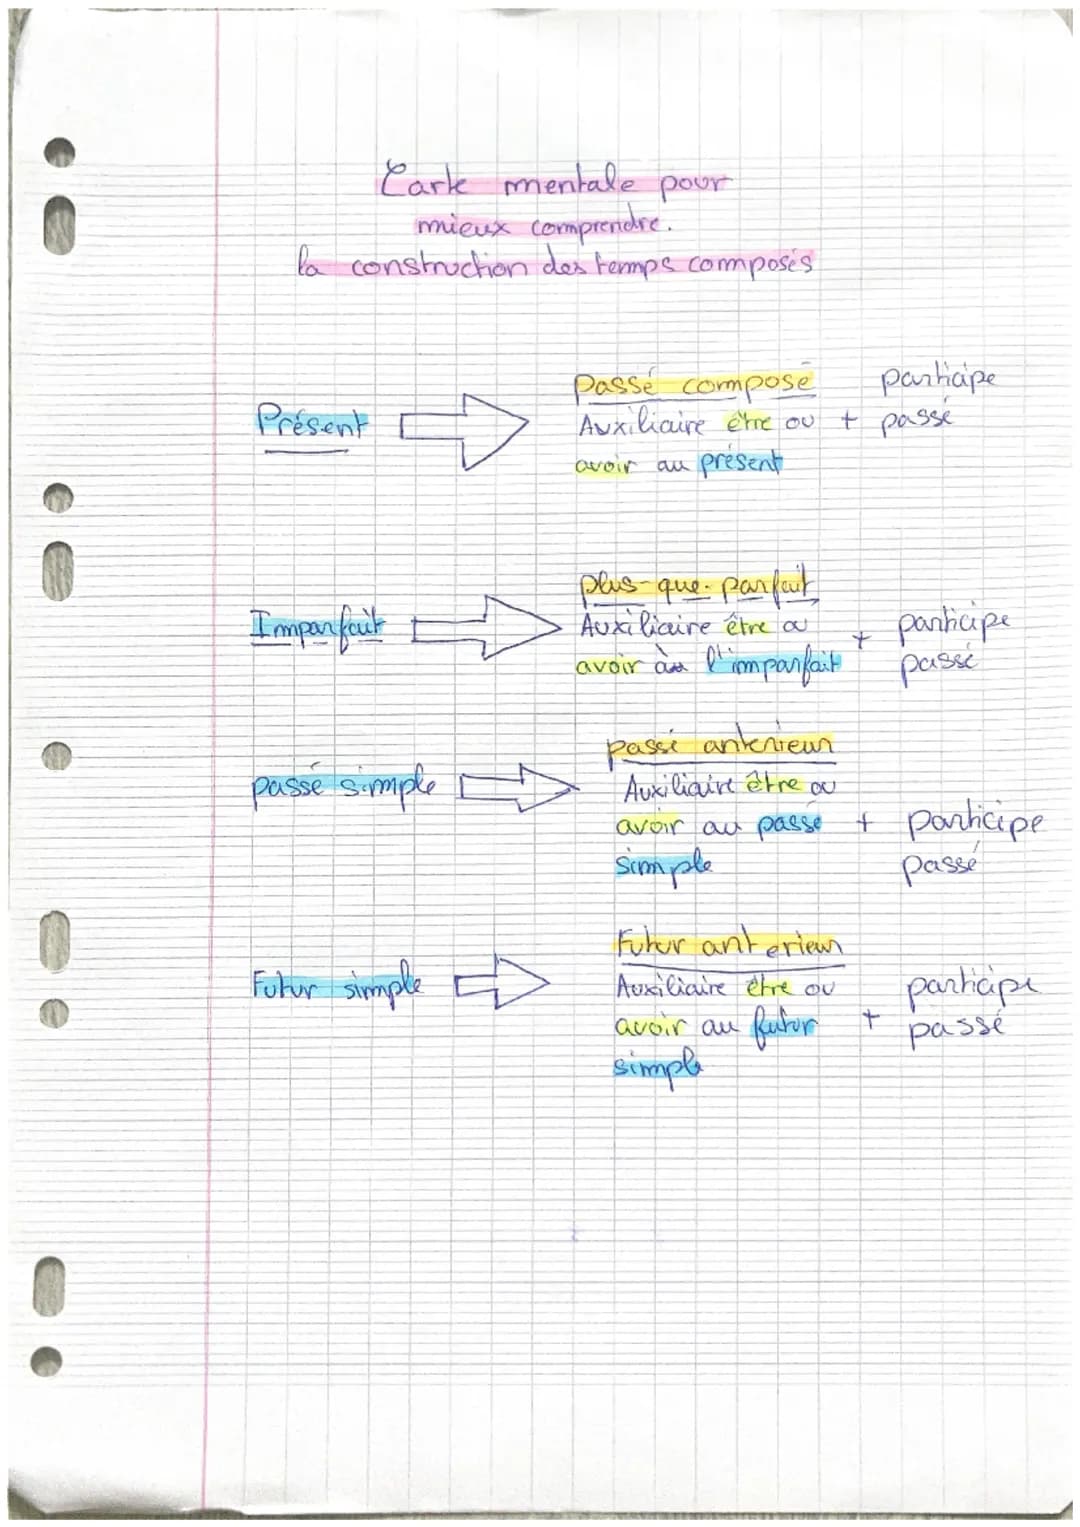 Carte mentale pour
mieux comprendre.
la construction des temps composés
Présent
Passé composé
Auxiliaire être ou
avoir au présent
+
participe
passé
Imparfait
plus-que-parfait
Auxiliaire être ou
avoir à l'imparfait
+
participe
passé
passé simple
passé antérieur
Auxiliaire être ou
avoir au passé
simple
+
participe
passé
Futur simple
Futur anterieur
Auxiliaire être ou
avoir au futur
simple
+
participe
passé